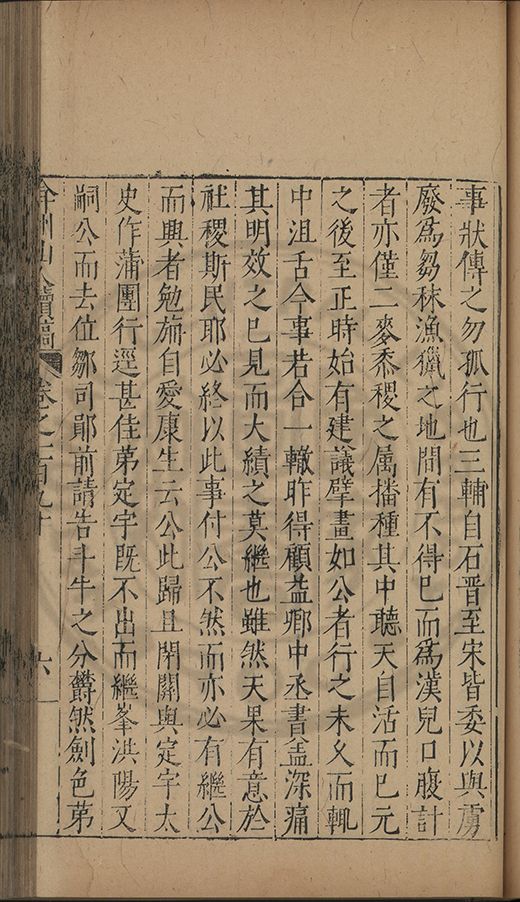 事狀傳之勿孤行也三輔自石晋至宋皆委以與虜
廢爲芻秣漁獵之地間有不得已而爲漢兒口腹計
者亦僅二麥黍稷之属播種其中聽天自活而已元
之後至正時始有建議擘畫如公者行之未久而輒
中沮舌今事若合一轍昨得顧益卿中丞書盖深痛
其明效之已見而大績之莫繼也雖然天果有意於
社稷斯民耶必終以此事付公不然而亦必有繼公
而興者勉旃自愛康生云公此歸且閉關與定宇太
史作蒲團行逕甚佳弟定宇既不出而繼峯洪陽又
嗣公而去位鄒司郧前請告斗牛之分欝然劍色弟
弇州山人續稿 卷之一百九十 六